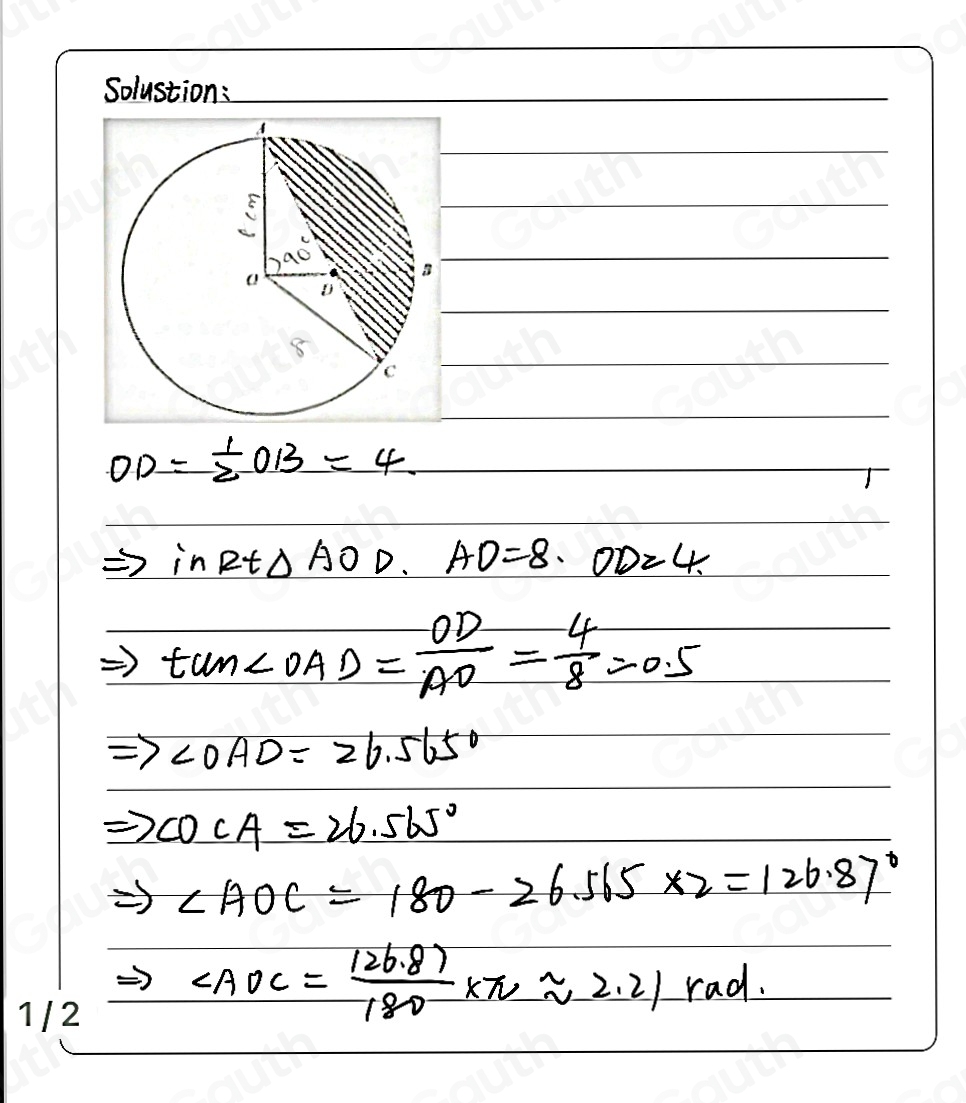 Solustion:
A
8cm
90°
O
D
B
8
C
OD = 1/2 OB = 4.
=> in Rt△ AOD. AO=8. OD=4.
=> tan∠OAD = OD/AO = 4/8 = 0.5
=> ∠OAD = 26.565°
=> ∠OCA = 26.565°
=> ∠AOC = 180 - 26.565 ×2 = 126.87°
=> ∠AOC = 126.87/180 ×π ≈ 2.21 rad.
1/2
Gauth